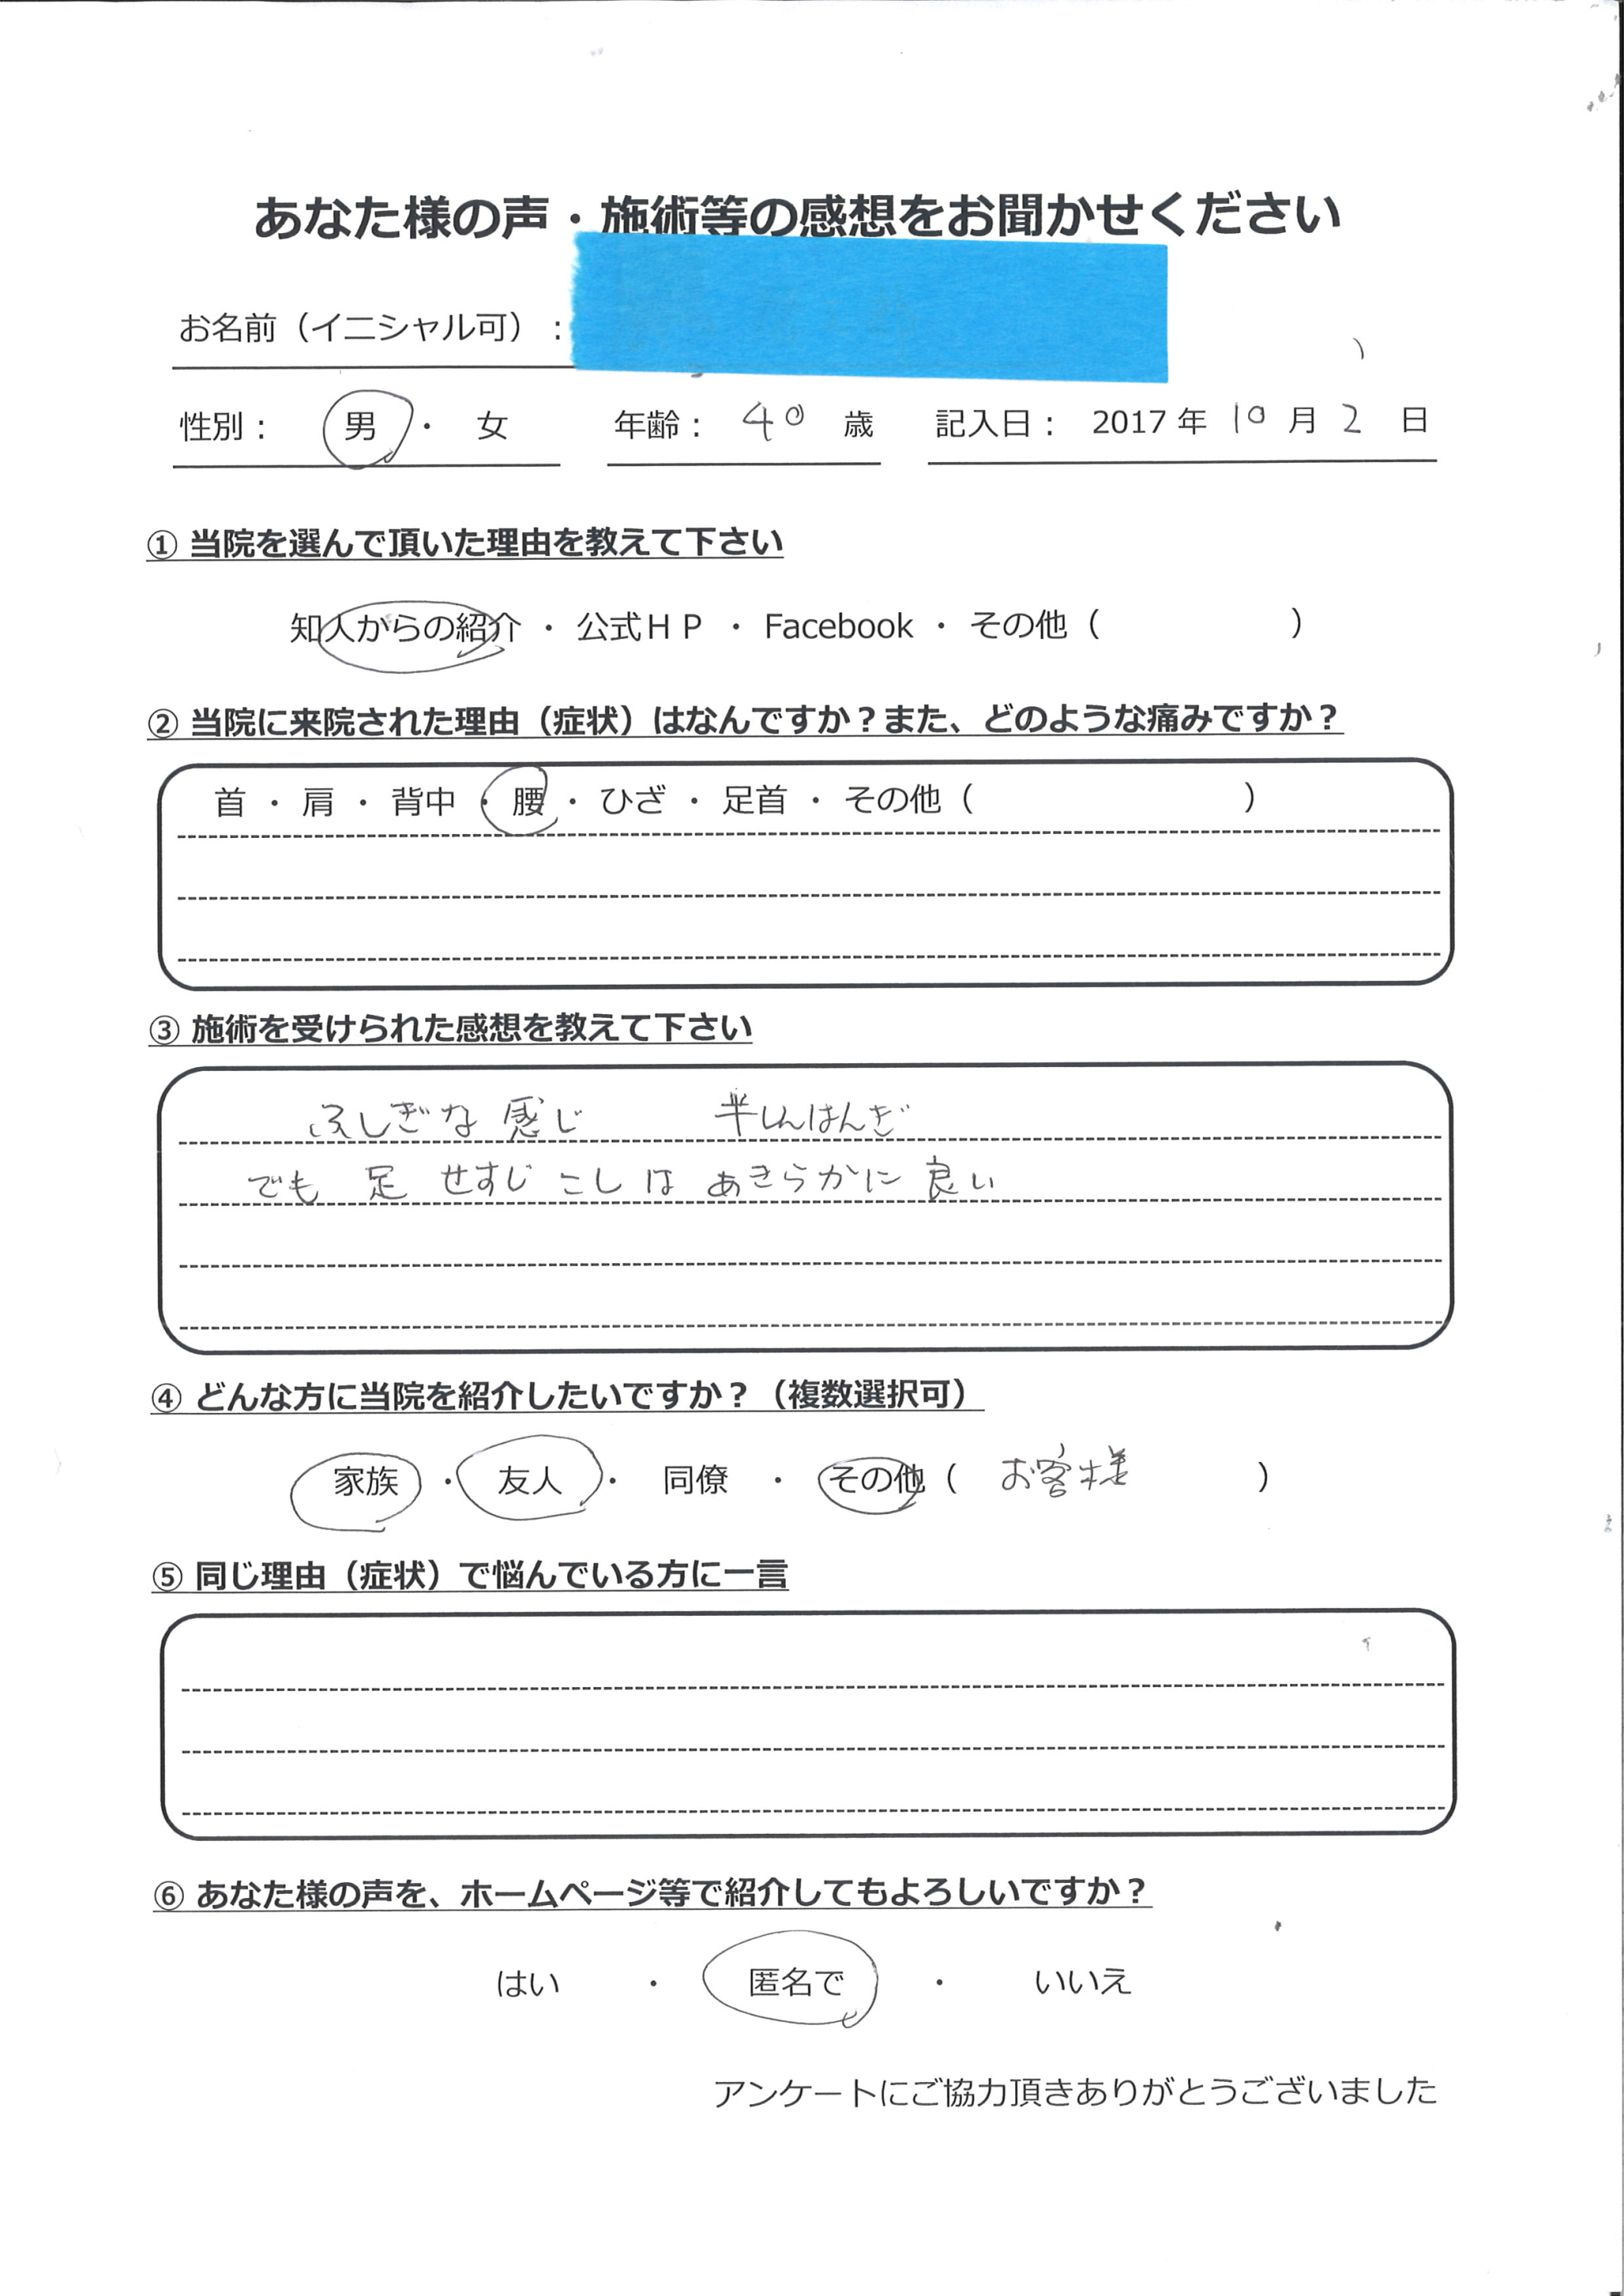 あなた様の声・施術等の感想をお聞かせください
お名前（イニシャル可）：
性別： 男 ・ 女 年齢： 40 歳 記入日： 2017 年 10 月 2 日
① 当院を選んで頂いた理由を教えて下さい
知人からの紹介 ・ 公式ＨＰ ・ Facebook ・ その他（ ）
② 当院に来院された理由（症状）はなんですか？また、どのような痛みですか？
首 ・ 肩 ・ 背中 ・ 腰 ・ ひざ ・ 足首 ・ その他（ ）
③ 施術を受けられた感想を教えて下さい
ふしぎな感じ 半しんはんぎ
でも 足 せすじ こし は あきらかに 良い
④ どんな方に当院を紹介したいですか？（複数選択可）
家族 ・ 友人 ・ 同僚 ・ その他（ お客様 ）
⑤ 同じ理由（症状）で悩んでいる方に一言
⑥ あなた様の声を、ホームページ等で紹介してもよろしいですか？
はい ・ 匿名で ・ いいえ
アンケートにご協力頂きありがとうございました